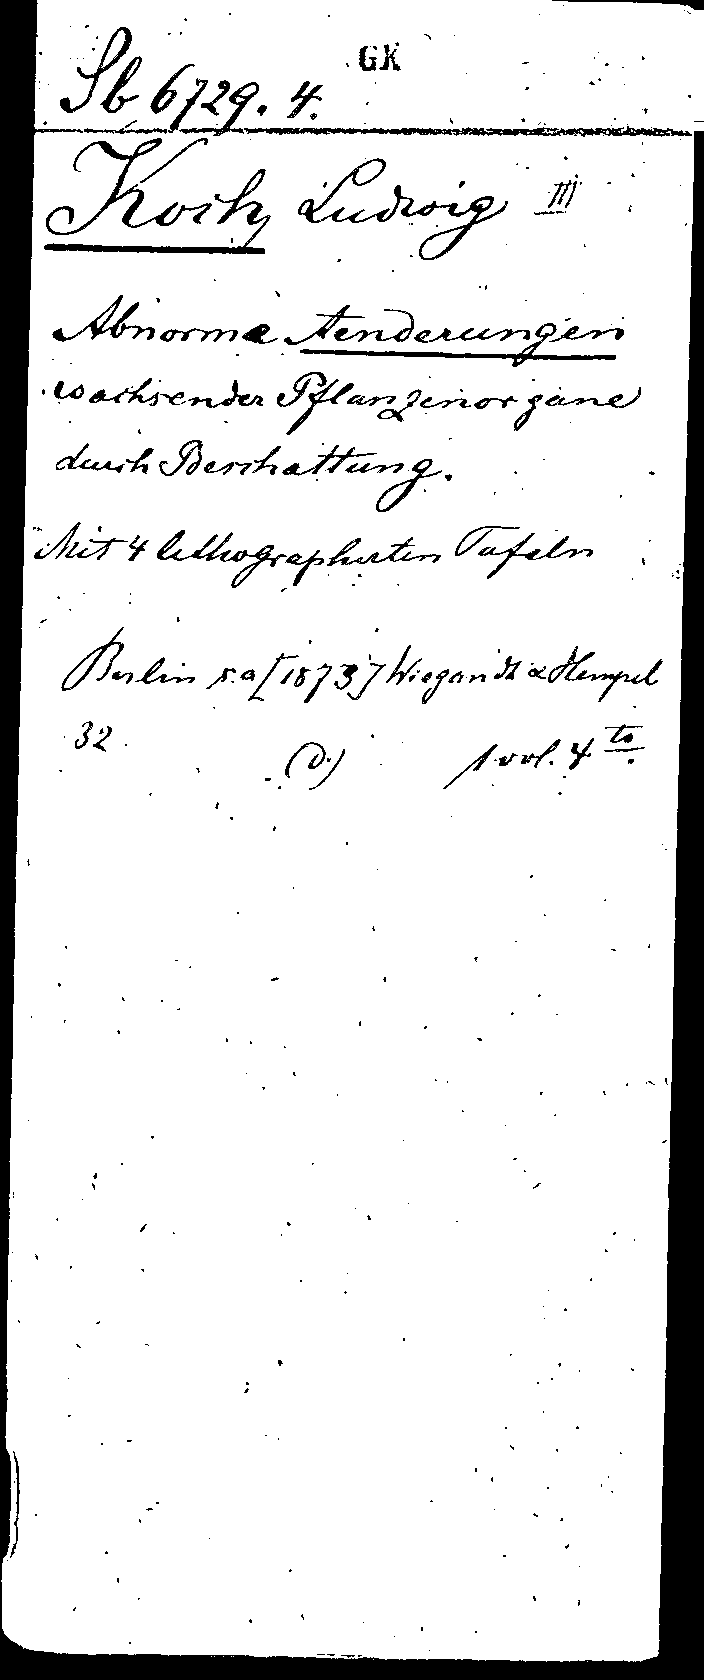 GK
Sb 6729. 4.
Koch, Ludwig III
Abnorme Aenderungen
wachsender Pflanzenorgane
durch Beschattung.
Mit 4 lithographirten Tafeln
Berlin s.a [1873] Wiegandt & Hempel
32 (D.) 1 vol. 4 to.